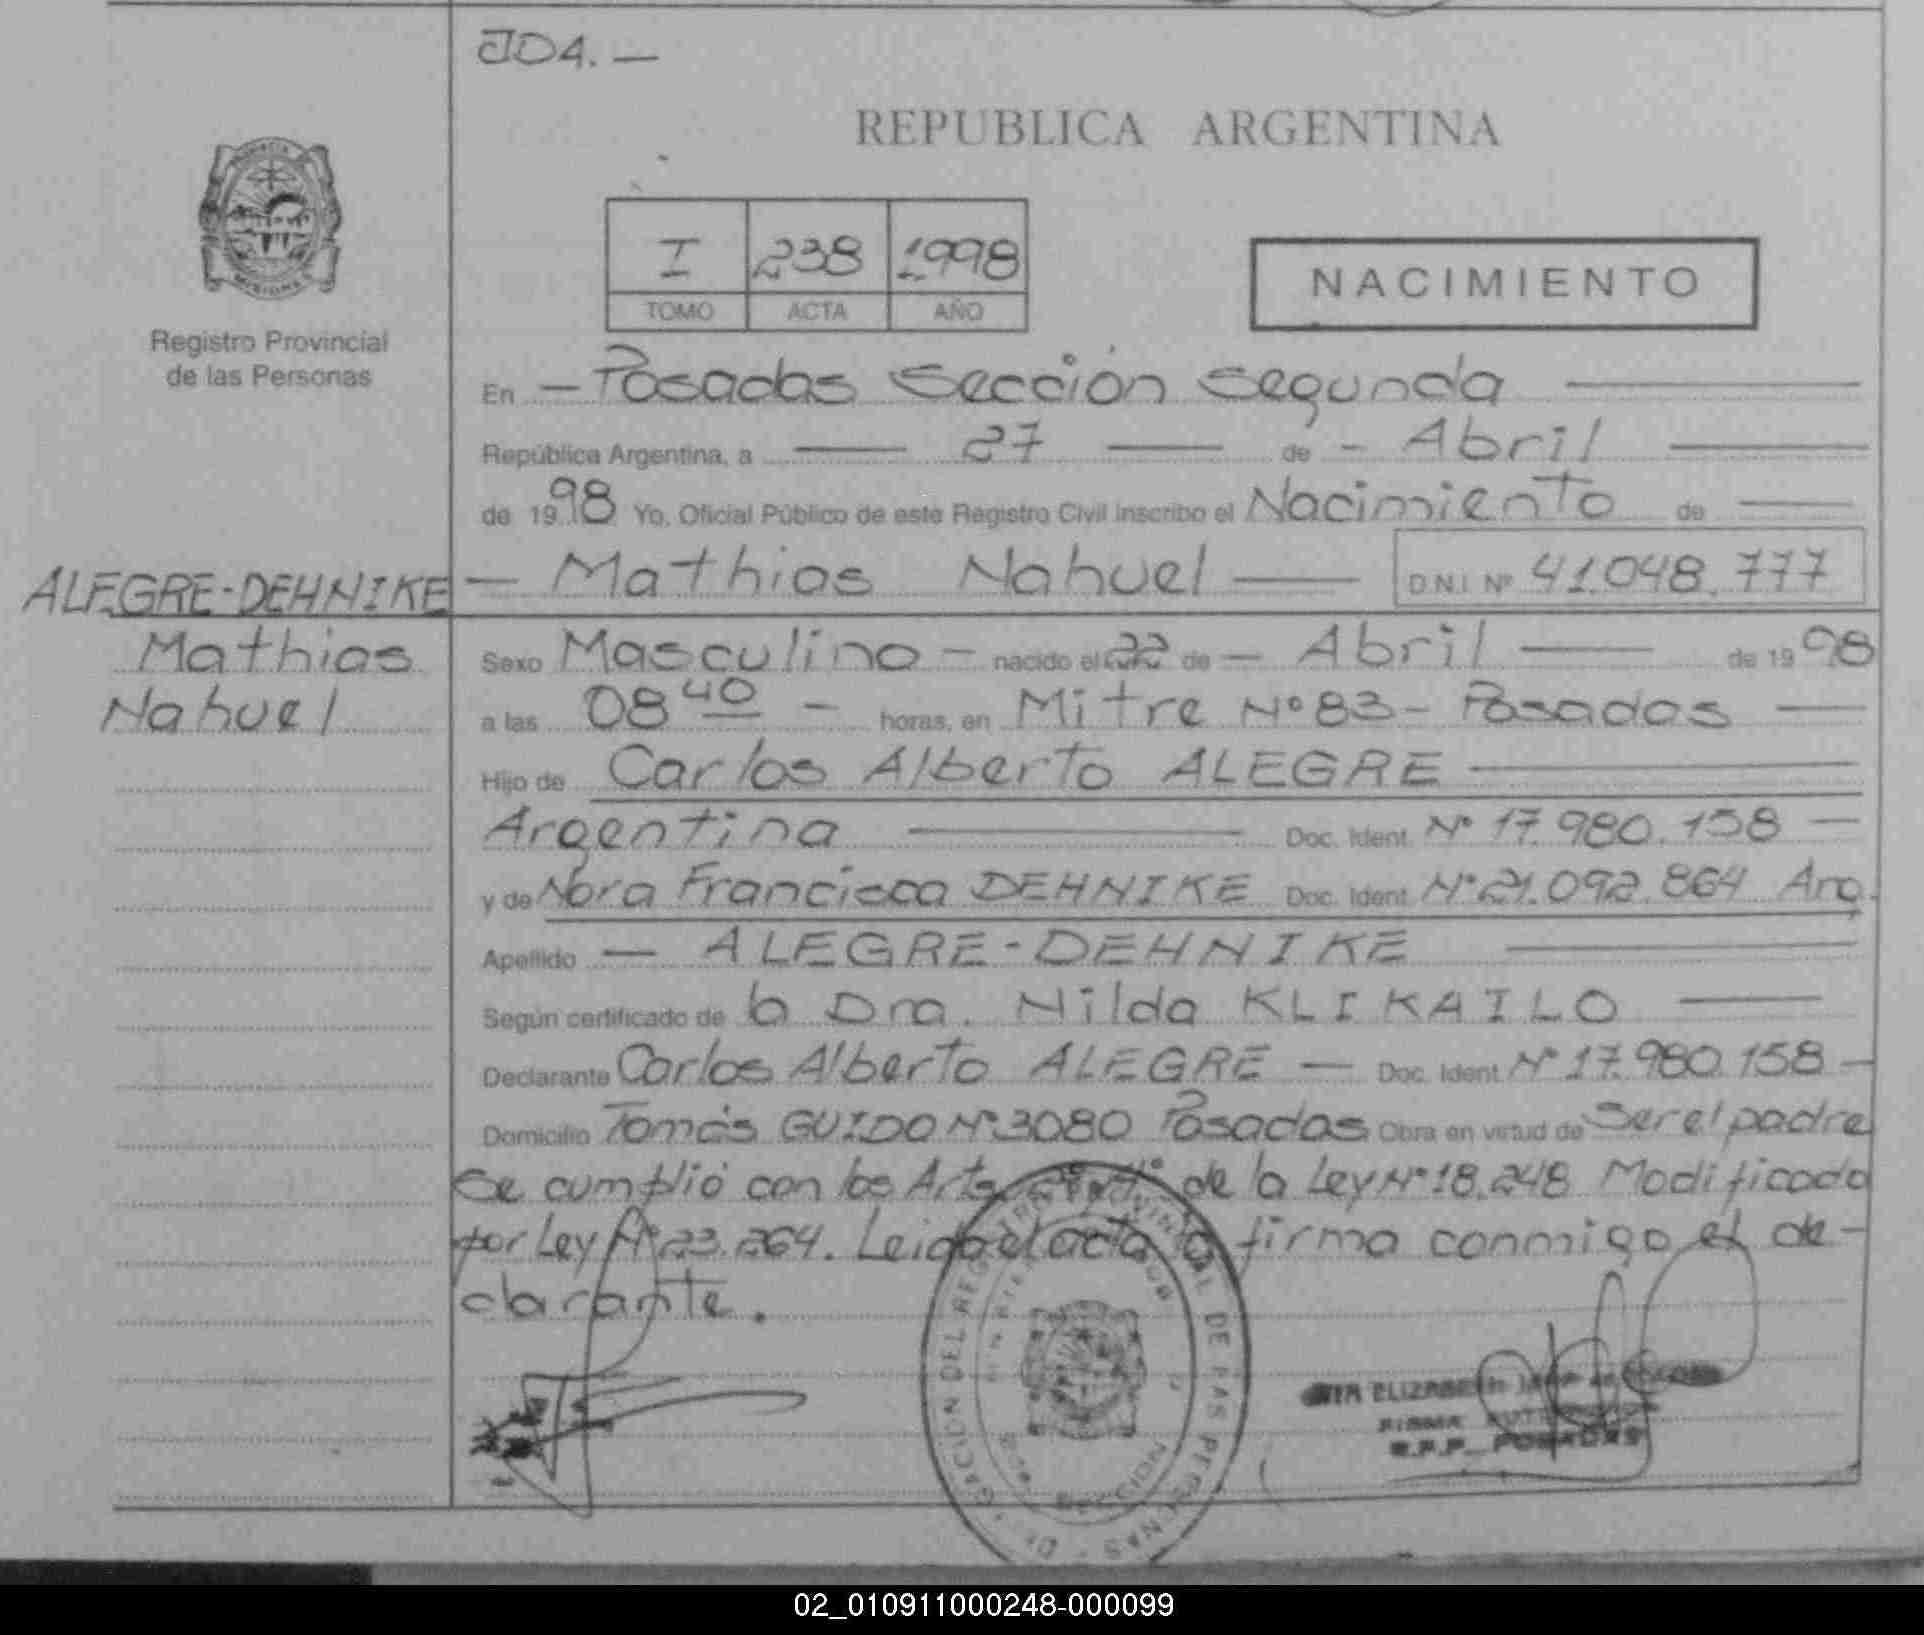 104. —
REPUBLICA ARGENTINA
I 238 1998
TOMO ACTA AÑO
NACIMIENTO
Registro Provincial
de las Personas
En — Posadas Sección Segunda —
República Argentina, a — 27 — de - Abril —
de 1998 Yo, Oficial Público de este Registro Civil inscribo el Nacimiento de —
ALEGRE-DEHNIKE — Mathias Nahuel — D.N.I. Nº 41.048.777
Mathias
Nahuel
Sexo Masculino - nacido el 22 de — Abril — de 1998
a las 08 40 - horas, en Mitre Nº 83 - Posadas —
Hijo de Carlos Alberto ALEGRE —
Argentina — Doc. Ident. Nº 17.980.158 —
y de Nora Francisca DEHNIKE Doc. Ident. Nº 21.092.864 Arg.
Apellido — ALEGRE-DEHNIKE —
Según certificado de la Dra. Nilda KLIKAILO —
Declarante Carlos Alberto ALEGRE — Doc. Ident. Nº 17.980.158 —
Domicilio Tomás GUIDO Nº 3080 Posadas Obra en virtud de Ser el padre
Se cumplió con los Arts. de la Ley Nº 18.248 Modificada
por Ley Nº 23.264. Leida el acta la firma conmigo el de-
clarante.
DEL REGISTRO PROVINCIAL DE LAS PERSONAS
ELIZABETH
FIRMA
R.P.P. POSADAS
02_010911000248-000099